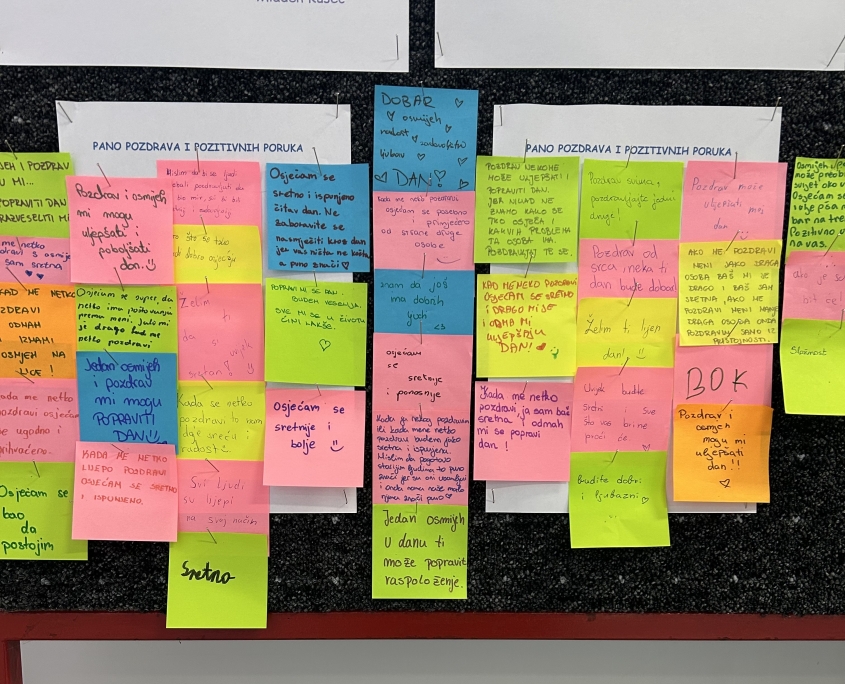 Mladen Kušec
PANO POZDRAVA I POZITIVNIH PORUKA
PANO POZDRAVA I POZITIVNIH PORUKA
I POZDRAV
U MI...
POPRAVITI DAN
RAZVESELITI MI
me netko
sam sretna
KAD ME NETKO
POZDRAVI
ODMAH
IZMAMI
OSMJEH NA
LICE!
kada me netko
pozdravi osjećam
se ugodno i
prihvaćeno.
Osjećam se
kao
da
postojim
Pozdrav i osmijeh
mi mogu
uljepšati i
poboljšati
dan.
Osjećam se super, da
netko ima poštovanja
prema meni. Jako mi
je drago kad me
netko pozdravi
Jedan osmijeh
i pozdrav
mi mogu
POPRAVITI
DAN
KADA ME NETKO
LIJEPO POZDRAVI
OSJEĆAM SE SRETNO
I ISPUNJENO.
Želim
ti
da si
uvijek
sretan
Kada se netko
pozdravi to nam
daje sreću i
radost
Svi ljudi
su lijepi
na svoj način
Sretno
Osjećam se
sretno i ispunjeno
čitav dan. Ne
zaboravite se
nasmiješiti kroz dan
jer vas ništa ne košta
a puno znači
POPRAVI MI SE DAN.
BUDEM VESELIJA.
SVE MI SE U ŽIVOTU
ČINI LAKŠE.
Osjećam se
sretnije i
bolje
DOBAR
osmijeh
radost
zadovoljstvo
ljubav
DAN!
Kada me neko pozdravi
osjećam se posebno
i primijećeno
od strane druge
osobe
znam da još
ima dobrih
ljudi
<3
osjećam
se
sretnije
i
ponosnije
Kada ja nekog pozdravim
ili kada mene netko
pozdravi budem jako
sretna i ispunjena.
Mislim da pogotovo
starijim ljudima to puno
znači jer su oni usamljeni
i onda nama naše malo
njima znači puno
Jedan osmijeh
u danu ti
može popravit
raspoloženje.
POZDRAV NEKOME
MOŽE ULJEPŠATI I
POPRAVITI DAN.
JER NIKAD NE
ZNAMO KAKO SE
TKO OSJEĆA I
KAKVIH PROBLEMA
TA OSOBA IMA.
POZDRAVLJAJTE SE.
KAD ME NEKO POZDRAVI
OSJEĆAM SE SRETNO
I DRAGO MI JE
I ODMA MI
ULJEPŠAJU
DAN!
Kada me netko
pozdravi ja sam baš
sretna i odmah
mi se popravi
dan!
Pozdrav svima,
pozdravljajte jedni
druge!
Pozdrav od
srca neka ti
dan bude dobar
Želim ti lijen
dan!
Uvijek budite
sretni i sve
što vas brine
proći će
budite dobri
i ljubazni
Pozdrav može
uljepšati moj
dan
AKO ME POZDRAVI
NEKI JAKO DRAGA
OSOBA BAŠ MI JE
DRAGO I BAŠ SAM
SRETNA, AKO ME
POZDRAVI MENI MANJE
DRAGA OSOBA ONDA
POZDRAVIM SAMO IZ
PRISTOJNOSTI.
BOK
Pozdrav i
osmjeh
mogu mi
uljepšati
dan!!